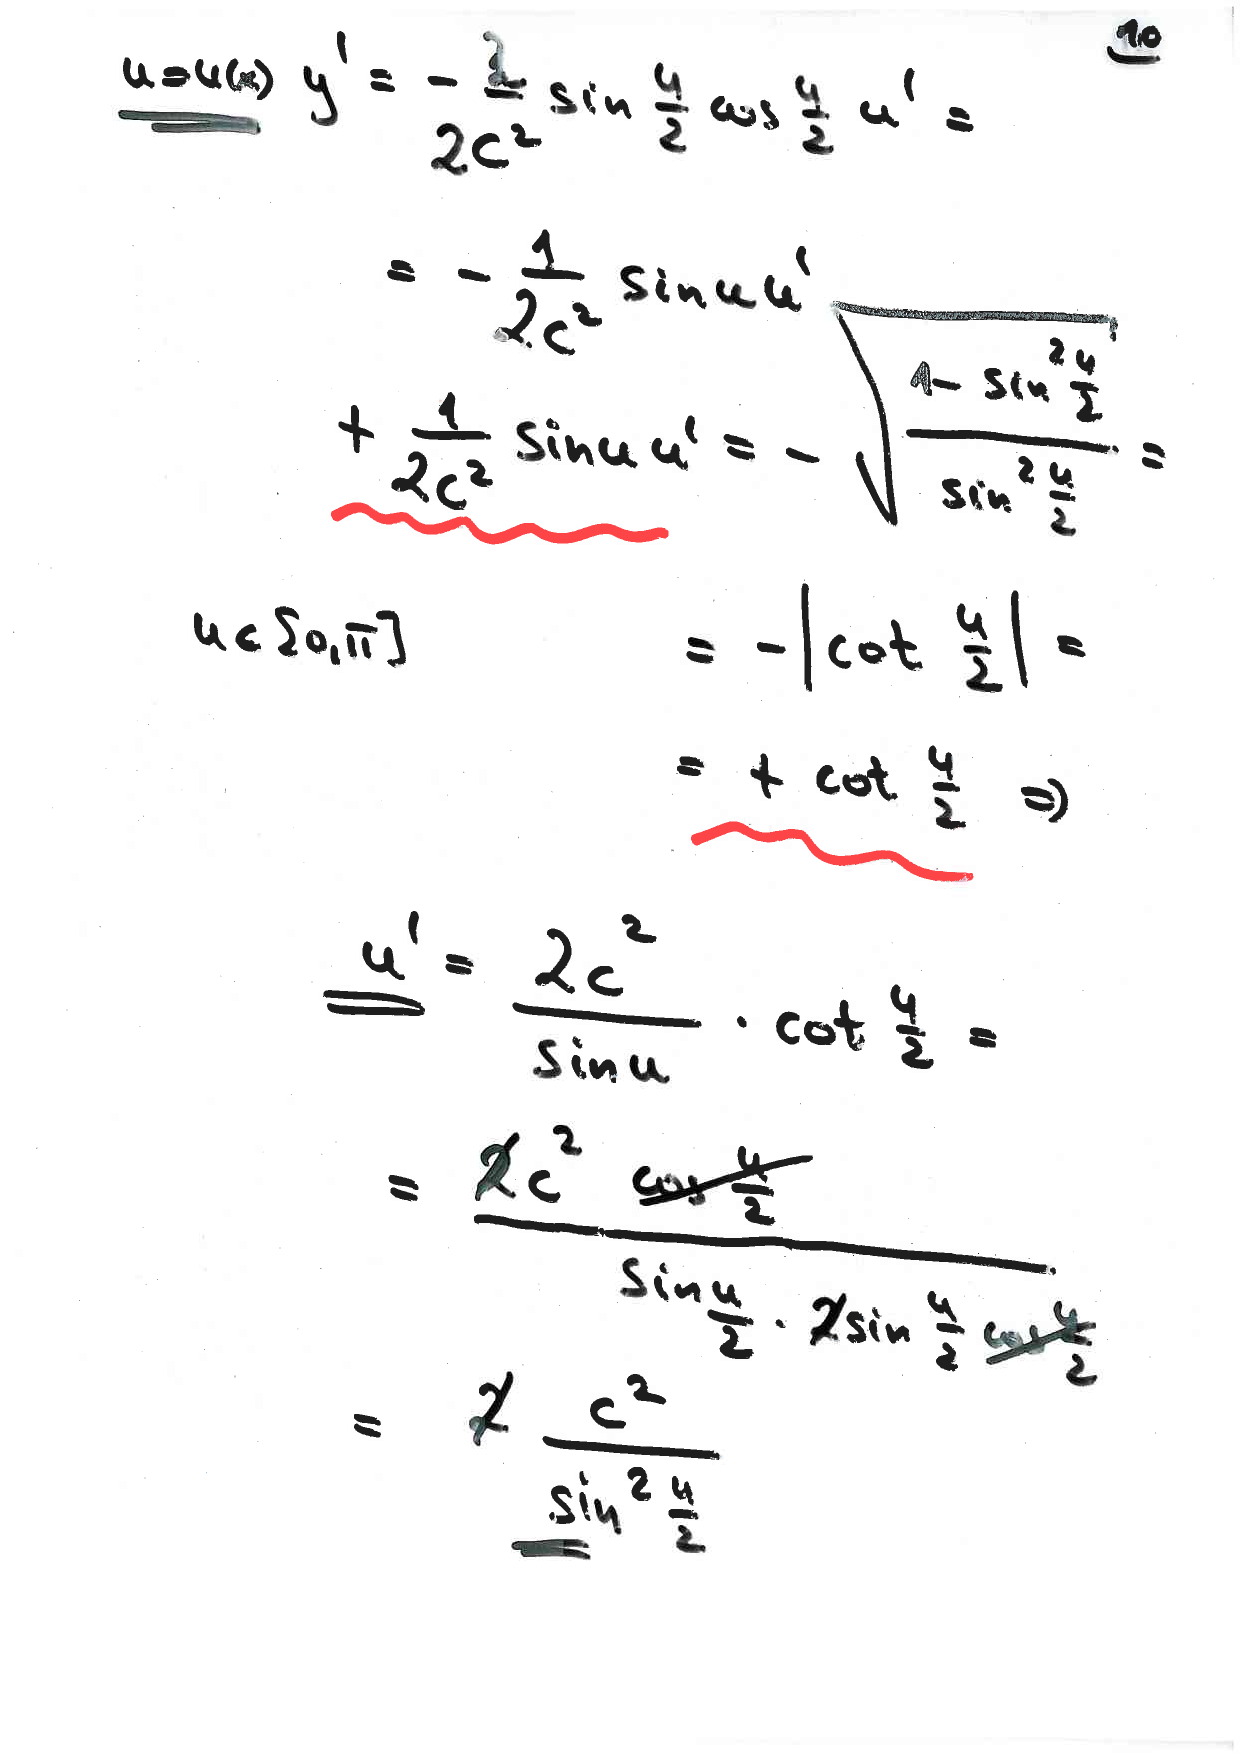 10
u=u(x) y' = - 2/2c² sin u/2 cos u/2 u' =
= - 1/2c² sin u u'
+ 1/2c² sin u u' = - √((1 - sin² u/2)/(sin² u/2)) =
u ∈ [0,π] = -|cot u/2| =
= + cot u/2 ⇒
u' = 2c²/sin u · cot u/2 =
= 2c² cos u/2 / (sin u/2 · 2 sin u/2 cos u/2)
= 2 c²/(sin² u/2)